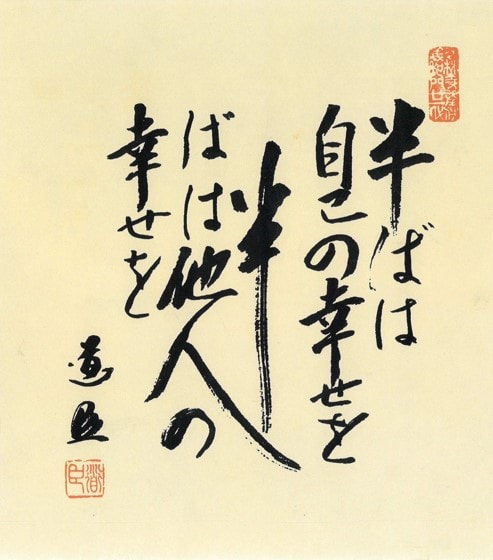 半ばは
自己の幸せを
半
ばは他人の
幸せを
道臣
道臣